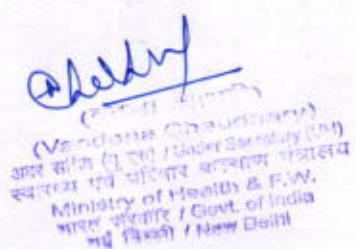 (Vandana Chaudhary)
अवर सचिव (यू एस) / Under Secretary
स्वास्थ्य एवं परिवार कल्याण मंत्रालय
Ministry of Health & F.W.
भारत सरकार / Govt. of India
नई दिल्ली / New Delhi